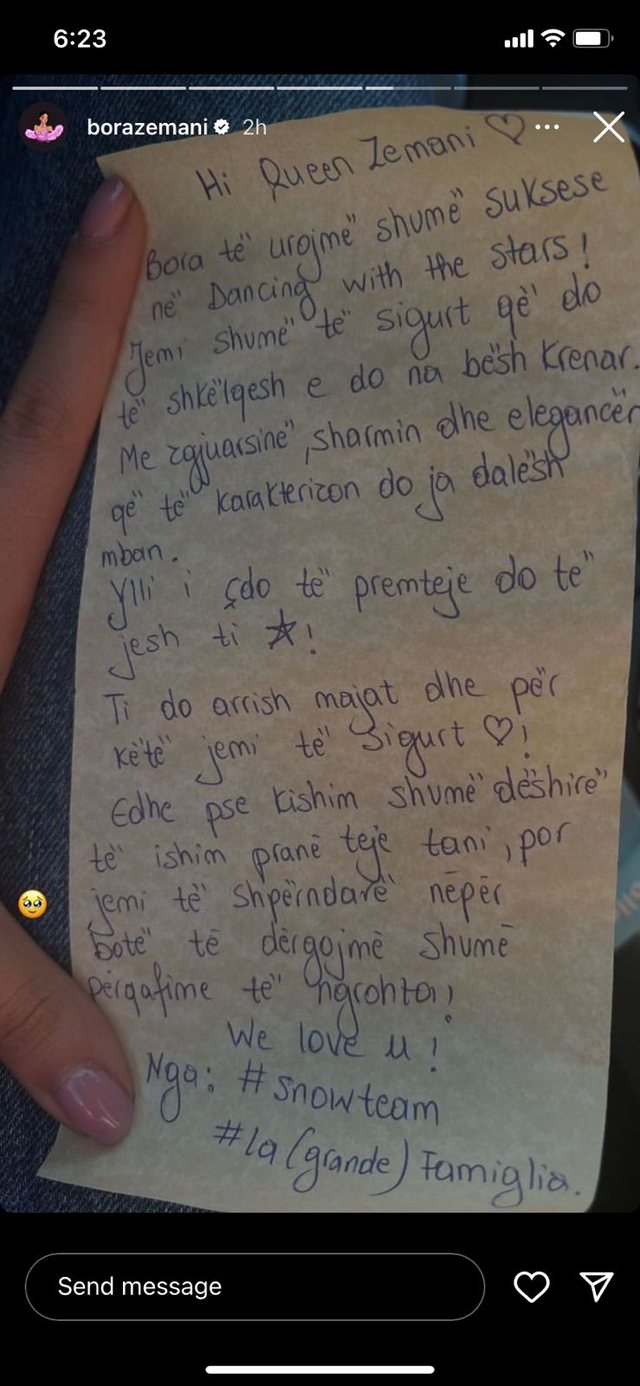 6:23
borazemani 2h
Hi Queen Zemani ♡
Bora të urojmë shumë suksese
në Dancing with the stars!
Jemi shumë të sigurt që do
të shkëlqesh e do na bësh Krenar.
Me zgjuarsinë, sharmin dhe elegancën
që të karakterizon do ja dalësh
mban.
Ylli i çdo të premteje do të
jesh ti ☆!
Ti do arrish majat dhe për
këtë jemi të Sigurt ♡!
Edhe pse kishim shumë dëshirë
të ishim pranë teje tani, por
jemi të shpërndarë nëpër
botë të dërgojmë shumë
përqafime të ngrohta!
We love u!
Nga: #snowteam
#la(grande) Famiglia.
Send message